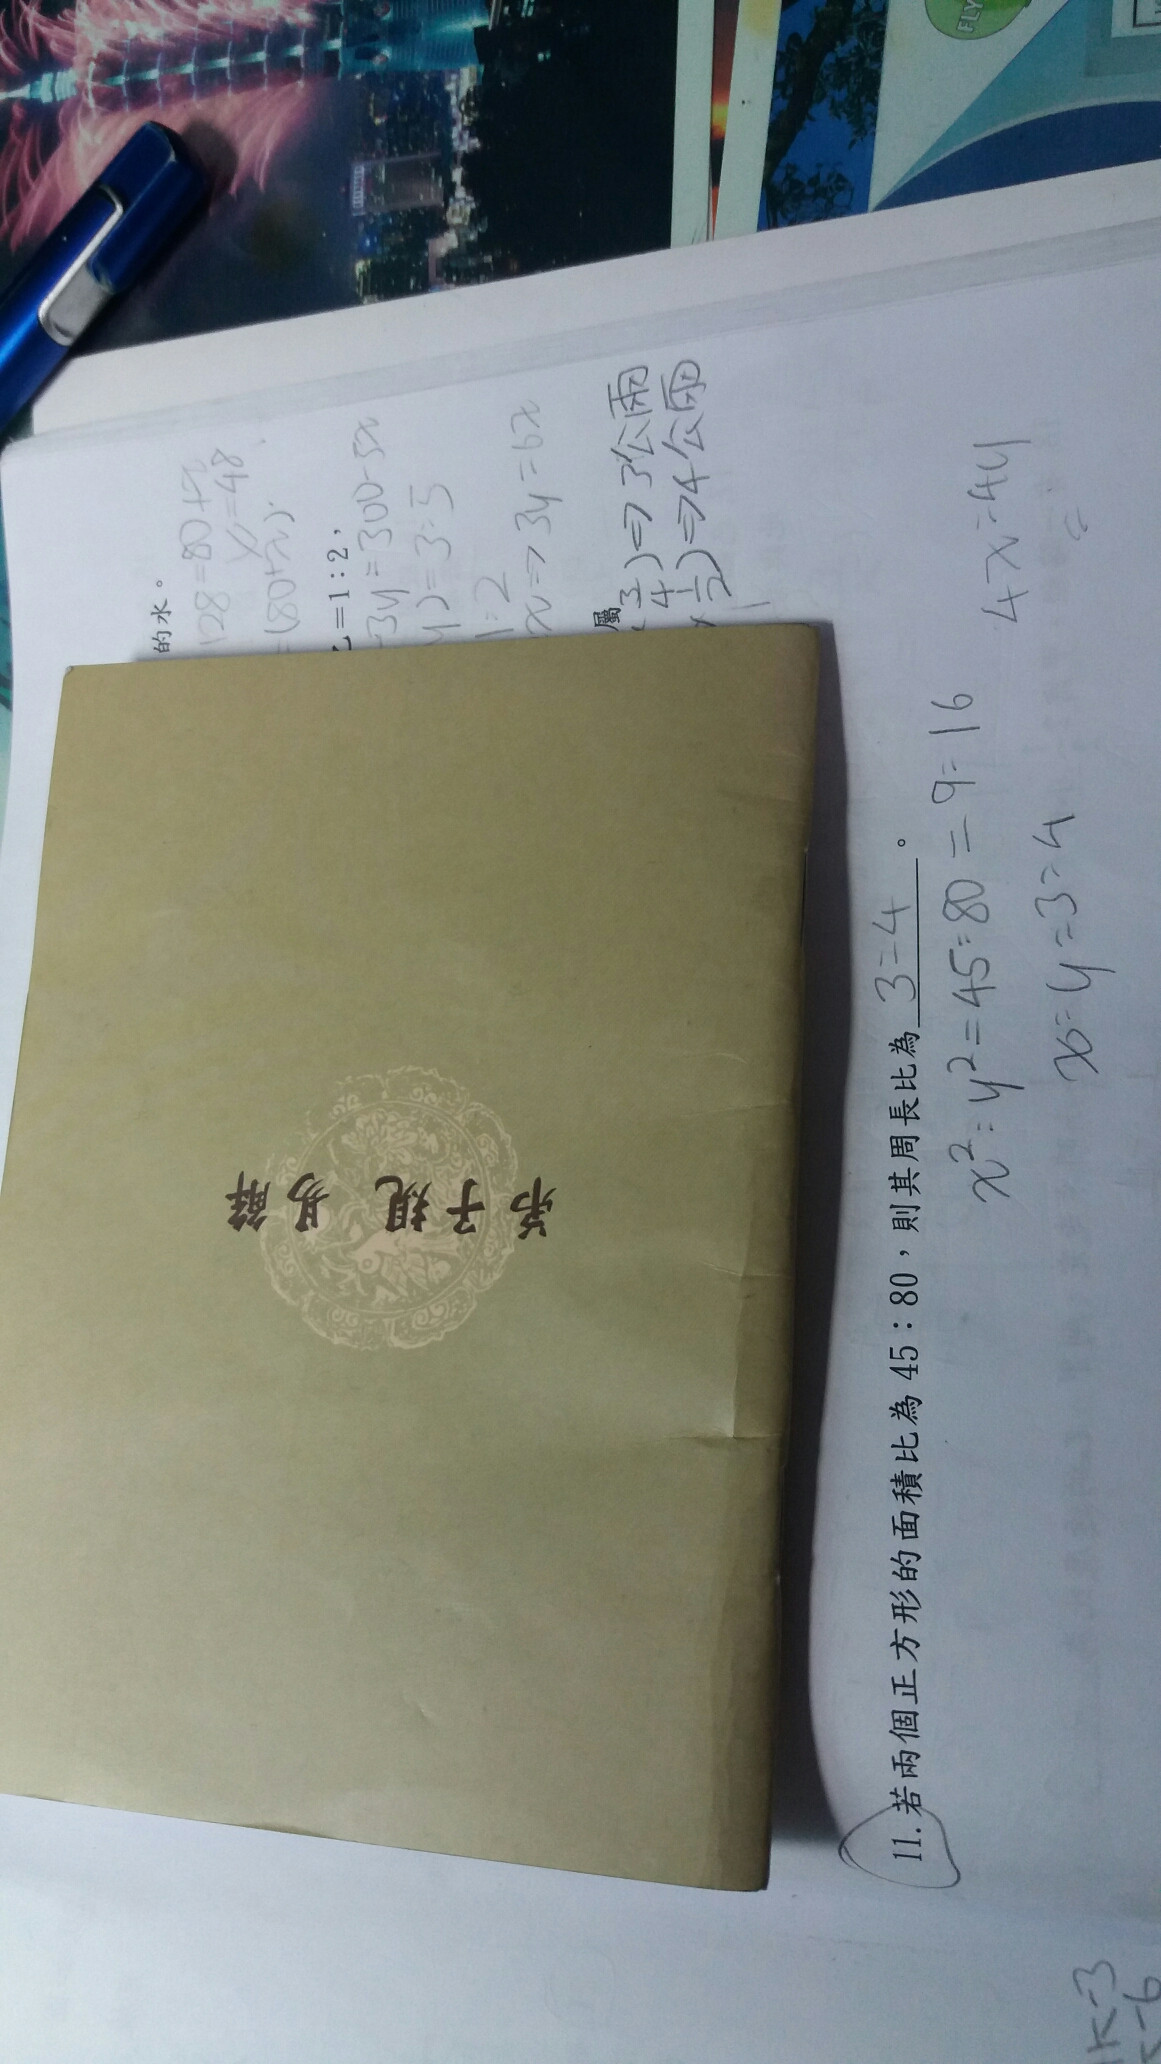 的水。
128=80+
x=48
乙=1:2,
3y=300-5x
y)=3:5
1:2
x=>3y=6x
屬
3/4)=>3公兩
1/2)=>4公兩
弟子規易解
11.若兩個正方形的面積比為 45:80,則其周長比為 3:4 。
x²:y²=45:80=9:16
4x:4y
x:y=3:4
K=3
=6
FLY